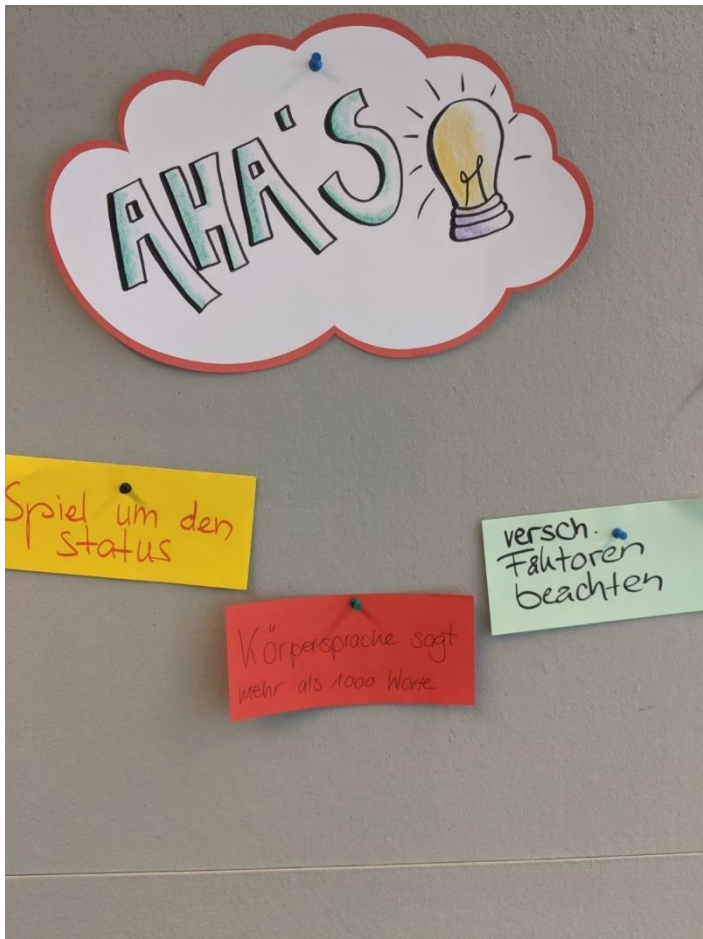 AHA'S
Spiel um den
Status
Körpersprache sagt
mehr als 1000 Worte
versch.
Faktoren
beachten